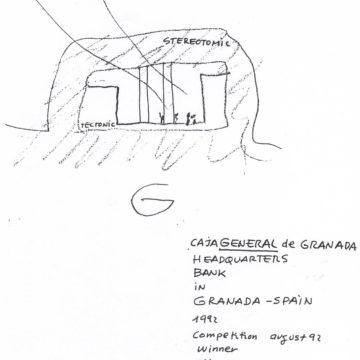 STEREOTOMIC
TECTONIC
G
CAJA GENERAL de GRANADA
HEADQUARTERS
BANK
IN
GRANADA - SPAIN
1992
Competition august 92
Winner